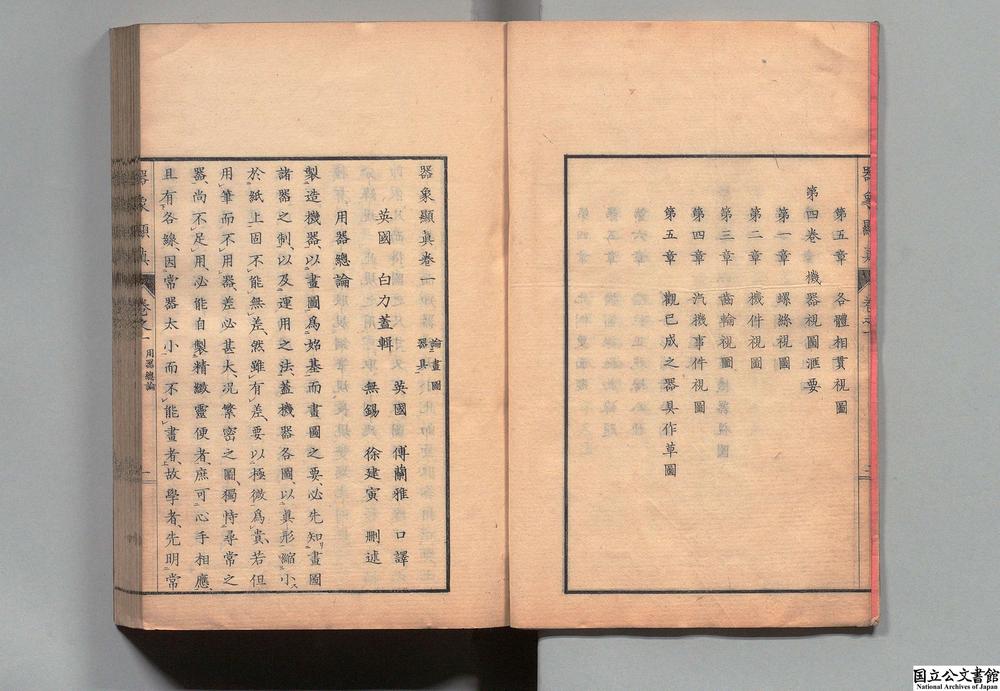 第五章 各體相貫視圖
第四卷 機器視圖滙要
第一章 螺絲視圖
第二章 機件視圖
第三章 齒輪視圖
第四章 汽機事件視圖
第五章 觀已成之器具作草圖
器象顯眞
卷之一
器象顯眞卷一 論畫圖器具
英國 白力蓋輯 英國 傅蘭雅 口譯
無錫 徐建寅 刪述
用器總論
製造機器、以畫圖爲始基、而畫圖之要、必先知畫圖
諸器之制、以及運用之法、蓋機器各圖、以眞形縮小、
於紙上、固不能無差、然雖有差、要以極微爲貴、若但
用筆而不用器、差必甚大、況繁密之圖、獨恃尋常之
器、尚不足用、必能自製精緻靈便者、庶可心手相應、
且有各線、因常器太小而不能畫者、故學者、先明常
器象顯眞
卷之一
用器總論
一
国立公文書館
National Archives of Japan